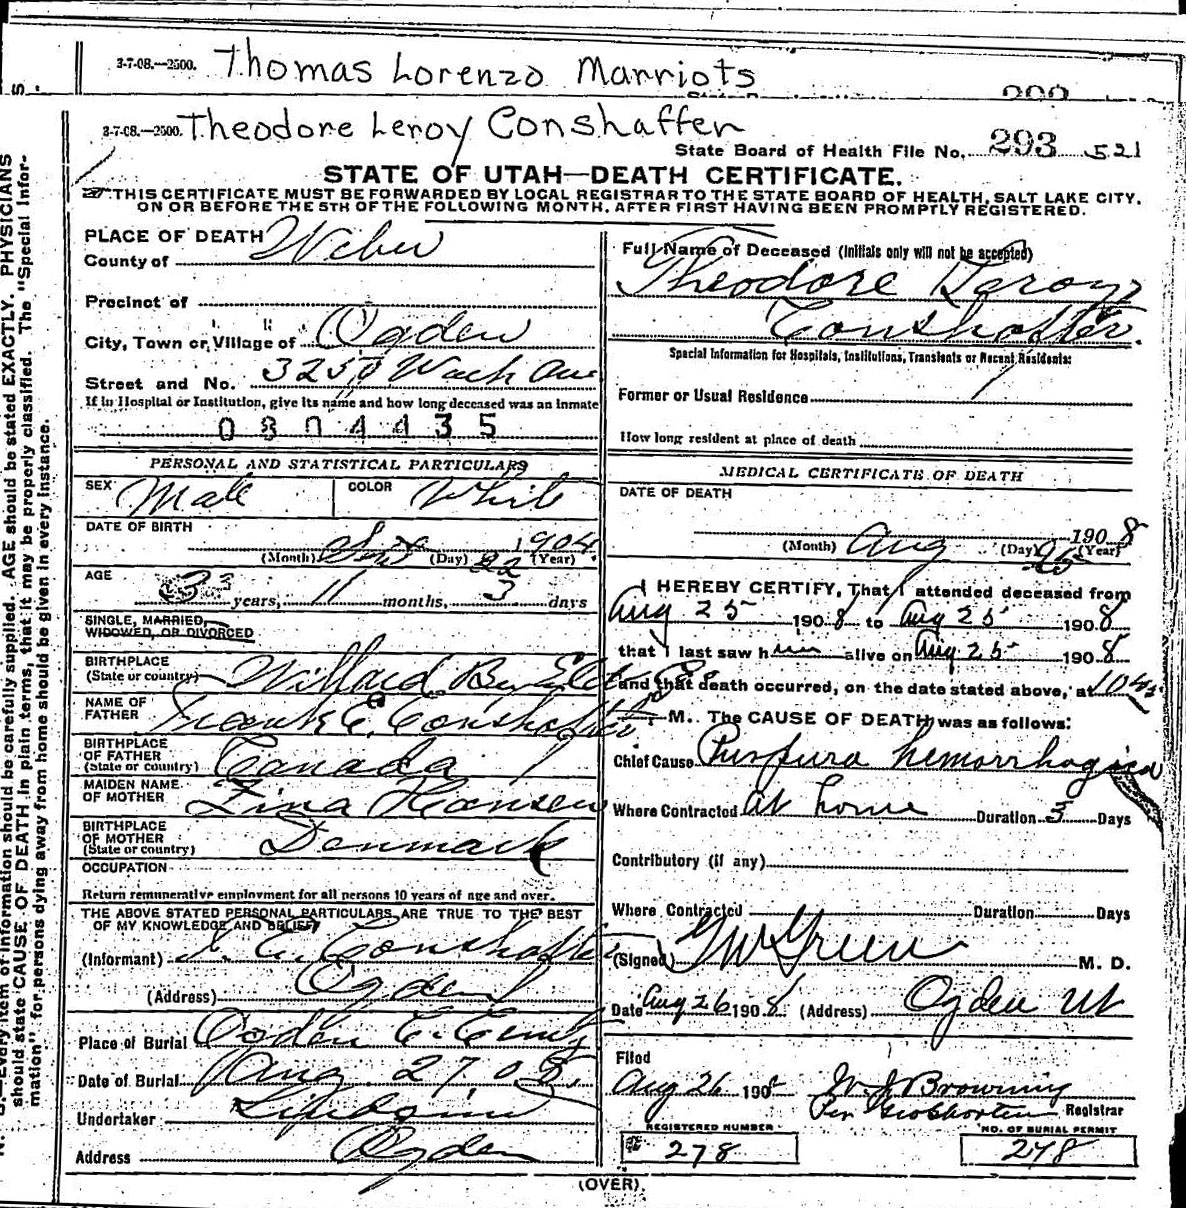 3-7-08.—2500. Thomas Lorenzo Marriots
3-7-08.—2500. Theodore Leroy Conshaffer
State Board of Health File No. 293 521
STATE OF UTAH—DEATH CERTIFICATE.
THIS CERTIFICATE MUST BE FORWARDED BY LOCAL REGISTRAR TO THE STATE BOARD OF HEALTH, SALT LAKE CITY,
ON OR BEFORE THE 5TH OF THE FOLLOWING MONTH, AFTER FIRST HAVING BEEN PROMPTLY REGISTERED.
PLACE OF DEATH
County of Weber
Precinct of
City, Town or Village of Ogden
Street and No. 3250 Wash Ave
If in Hospital or Institution, give its name and how long deceased was an inmate
0804435
PERSONAL AND STATISTICAL PARTICULARS
SEX Male COLOR White
DATE OF BIRTH
(Month) Sept (Day) 22 1904 (Year)
AGE
3 years, 11 months, 3 days
SINGLE, MARRIED,
WIDOWED, OR DIVORCED
BIRTHPLACE
(State or country) Willard, Bx. Elder
NAME OF
FATHER Frank E. Conshaffer
BIRTHPLACE
OF FATHER
(State or country) Canada
MAIDEN NAME
OF MOTHER Tina Hansen
BIRTHPLACE
OF MOTHER
(State or country) Denmark
OCCUPATION
Return remunerative employment for all persons 10 years of age and over.
THE ABOVE STATED PERSONAL PARTICULARS ARE TRUE TO THE BEST
OF MY KNOWLEDGE AND BELIEF
(Informant) F. E. Conshaffer
(Address) Ogden
Place of Burial Ogden C. Cemty
Date of Burial Aug. 27, 08.
Undertaker
Address Ogden
Full Name of Deceased (Initials only will not be accepted)
Theodore Leroy
Conshaffer.
Special Information for Hospitals, Institutions, Transients or Recent Residents:
Former or Usual Residence
How long resident at place of death
MEDICAL CERTIFICATE OF DEATH
DATE OF DEATH
1908
(Month) Aug (Day) 25 (Year)
I HEREBY CERTIFY, That I attended deceased from
Aug 25 1908 to Aug 25 1908
that I last saw him alive on Aug 25 1908
and that death occurred, on the date stated above, at 10
M. The CAUSE OF DEATH was as follows:
Chief Cause Purpura hemorrhagica
Where Contracted At home Duration 3 Days
Contributory (if any)
Where Contracted Duration Days
(Signed) GW Green M. D.
Date Aug 26 1908 (Address) Ogden Ut
Filed
Aug 26 1908 W J Browning
Per Geo Shorten Registrar
REGISTERED NUMBER NO. OF BURIAL PERMIT
278 278
(OVER).
Every item of information should be carefully supplied. AGE should be stated EXACTLY. PHYSICIANS
should state CAUSE OF DEATH in plain terms, that it may be properly classified. The "Special Infor-
mation" for persons dying away from home should be given in every instance.